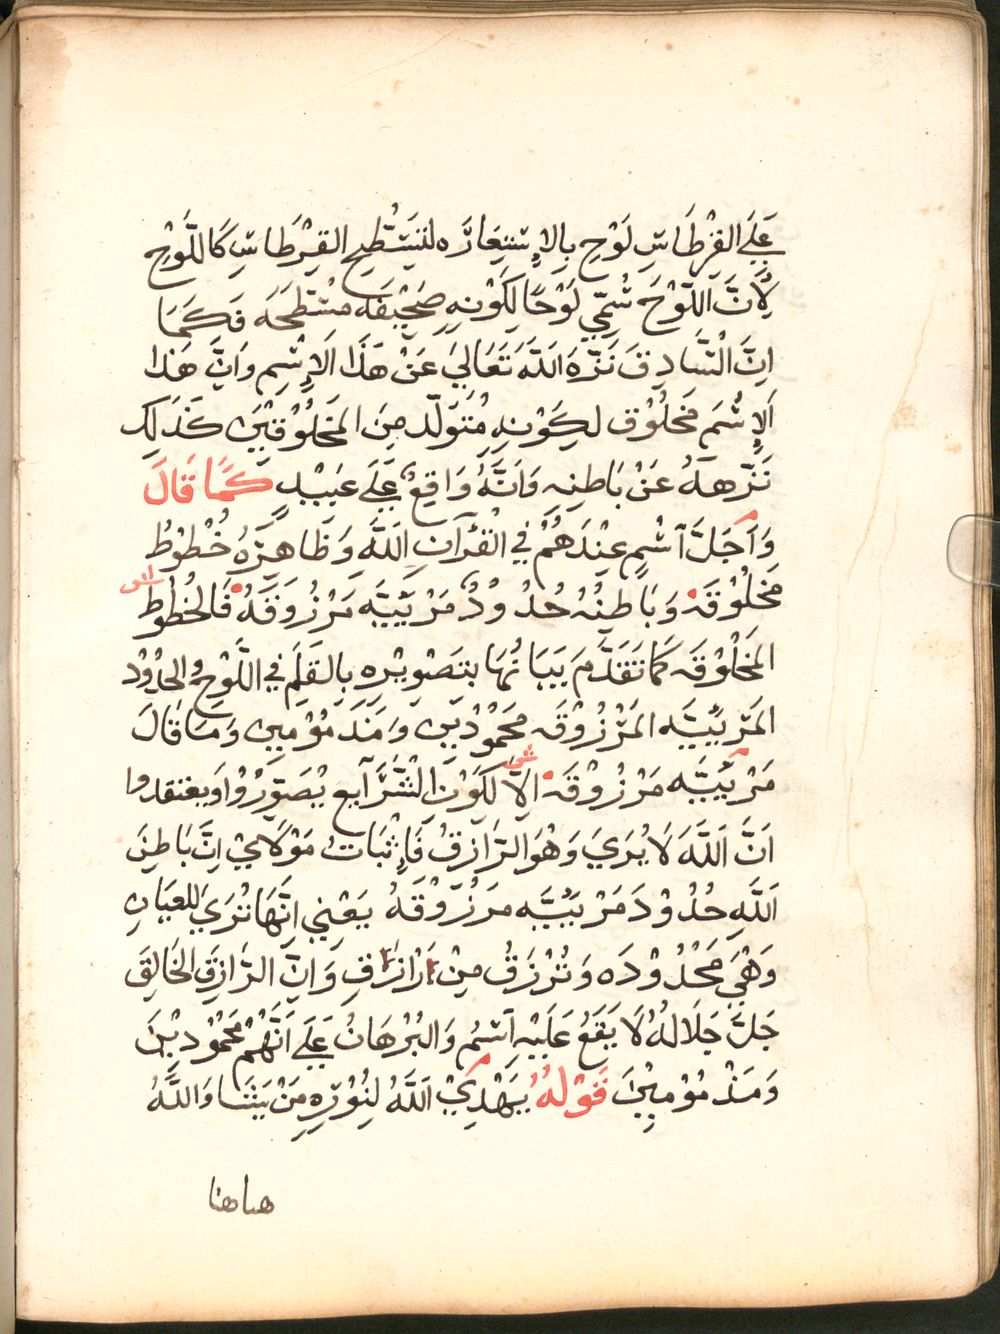 عَلَي القِرْطَاسِ لَوْحٍ بِالإِسْتِعَارَه لتَسَطِّيحِ القِرْطَاسِ كَاللَّوْحِ
لِأَنَّ اللَّوْحَ سُمِّي لَوْحًا لِكَوْنِهِ صَحِيْفَه مسُطَّحَه فَكَمَا
اِنَّ الْسَّادِقَ نَزَّهَ اللَّهَ تَعَالَي عَنْ هَذَا الإِسْمِ وَاَنَّ هَذا
الإِسْمَ مَخْلُوْق لِكَوْنِهِ مُتَوَلّد مِنَ المَخْلُوْقِيْنَ كَذَلِكَ
نَزَّههُ عَنْ بَاطِنِهِ وَاَنَّهُ وَاقِعٌ عَلَي عَبِيْدٍ كَمَا قَالَ
وَاَجَلَّ اَسْمٍ عِنْدَهُمْ فِي الْقُرْآنِ اللَّهَ وَظَاهِرَهُ خُطُوْطُ
مَخْلُوْقَه وَبَاطِنُهُ حُدُوْدٌ مَرْئيَّه مَرْزُوقَهُ فَالخُطُوْطُ
المَخْلُوْقَه كَمَا تَقَدَّمَ بَيَانُهَا بتَصْوِيْرِهِ بِالقَلَمِ فِي اللَّوْحِ وُالحُدُوْدُ
المَرْئيَّه المَرْزُوْقَه مَحْمُوْدِيْنَ وَمَنْدَمُوْمِين وَمَا قَالَ
مَرْئيَّه مَرْزُوْقَه اِلاَّ لكَوْنَ الْشَّرَآيع يُصَوِّرُوْا وَيَعْتَقدوا
اَنَّ اَللَّهَ لَا يُرَي وَهْوَ الرَّازِقُ فَإِثْبَاتُ مَوْلَايْ اِنَّ بَاطِنَ
اَللَّهِ حُدُوْدَ مَرْئيَّه مَرْزُوْقَهُ يَعْنِي اِنَّهَا تُرَي للعِيَانِ
وَهْيَ مَحْدُوْدَه وَتُرْزَقُ مِنْ اَرْزَاقِ وَاِنَّ الرَّازِقَ الخَالِقَ
جَلَّ جَلَالهُ لَا يَقَعُ عَلَيْهِ اَسْمُ وَالبُرْهَانُ عَلَي اَنَّهُمْ مَحْمُوْدِيْنَ
وَمَنْدَمُوْمِيْنَ قَوْلهُ يَهْدِيْ اللَّهُ لِنُوْرِهِ مَنْ يَشَا وَاللَّهُ
هاهنا